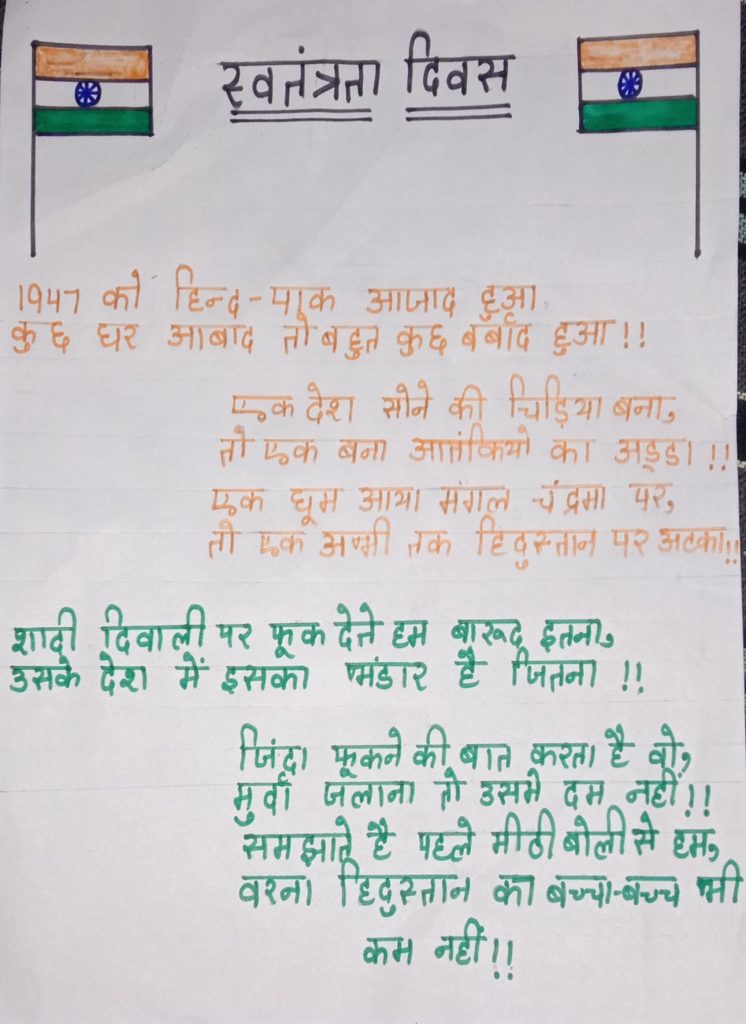 स्वतंत्रता दिवस
1947 को हिन्द-पाक आजाद हुआ
कुछ घर आबाद तो बहुत कुछ बर्बाद हुआ!!
एक देश सोने की चिड़िया बना,
तो एक बना आतंकियो का अड्डा!!
एक घूम आया मंगल चंद्रमा पर,
तो एक अभी तक हिदुस्तान पर अटका!!
शादी दिवाली पर फूक देते हम बारूद इतना,
उसके देश में इसका भंडार है जितना !!
जिंदा फूकने की बात करता है वो,
मुर्दा जलाना तो उसमे दम नहीं!!
समझाते है पहले मीठी बोली से हम,
वरना हिदुस्तान का बच्चा-बच्च भी
कम नहीं!!